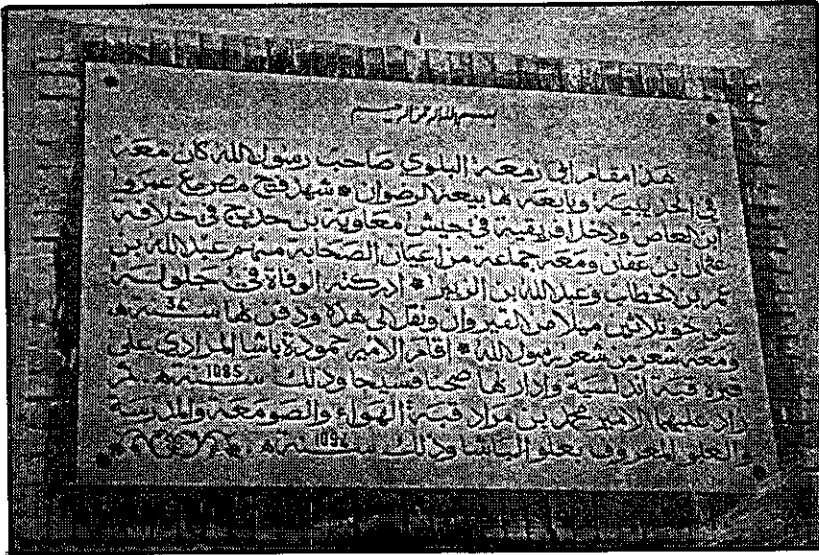 بسم الله الرحمن الرحيم
هذا مقام ابي زمعة البلوي صاحب رسول الله كان معه
في الحديبية وبايعه بها بيعة الرضوان * شهد فتح مصر مع عمرو
ابن العاص ودخل افريقية في جيش معاوية بن حديج في خلافة
عثمان بن عفان ومعه جماعة من اعيان الصحابة منهم عبد الله بن
عمر بن الخطاب وعبد الله بن الزبير * ادركته الوفاة في جلولة
على نحو ثلاثين ميلا من القيروان ونقل الى هذه ودفن بها سنة 34 هـ
ومعه شعر من شعر رسول الله * اقام الامير حمودة باشا المرادي على
قبره قبة اندلسية وادار بها صحنا فسيحا وذلك سنة 1085 هـ ثم
زاد عليها الامير محمد بن مراد قبة الهواء والصومعة والمدرسة
والعلو المعروف بعلو الباشا وذلك سنة 1094 هـ